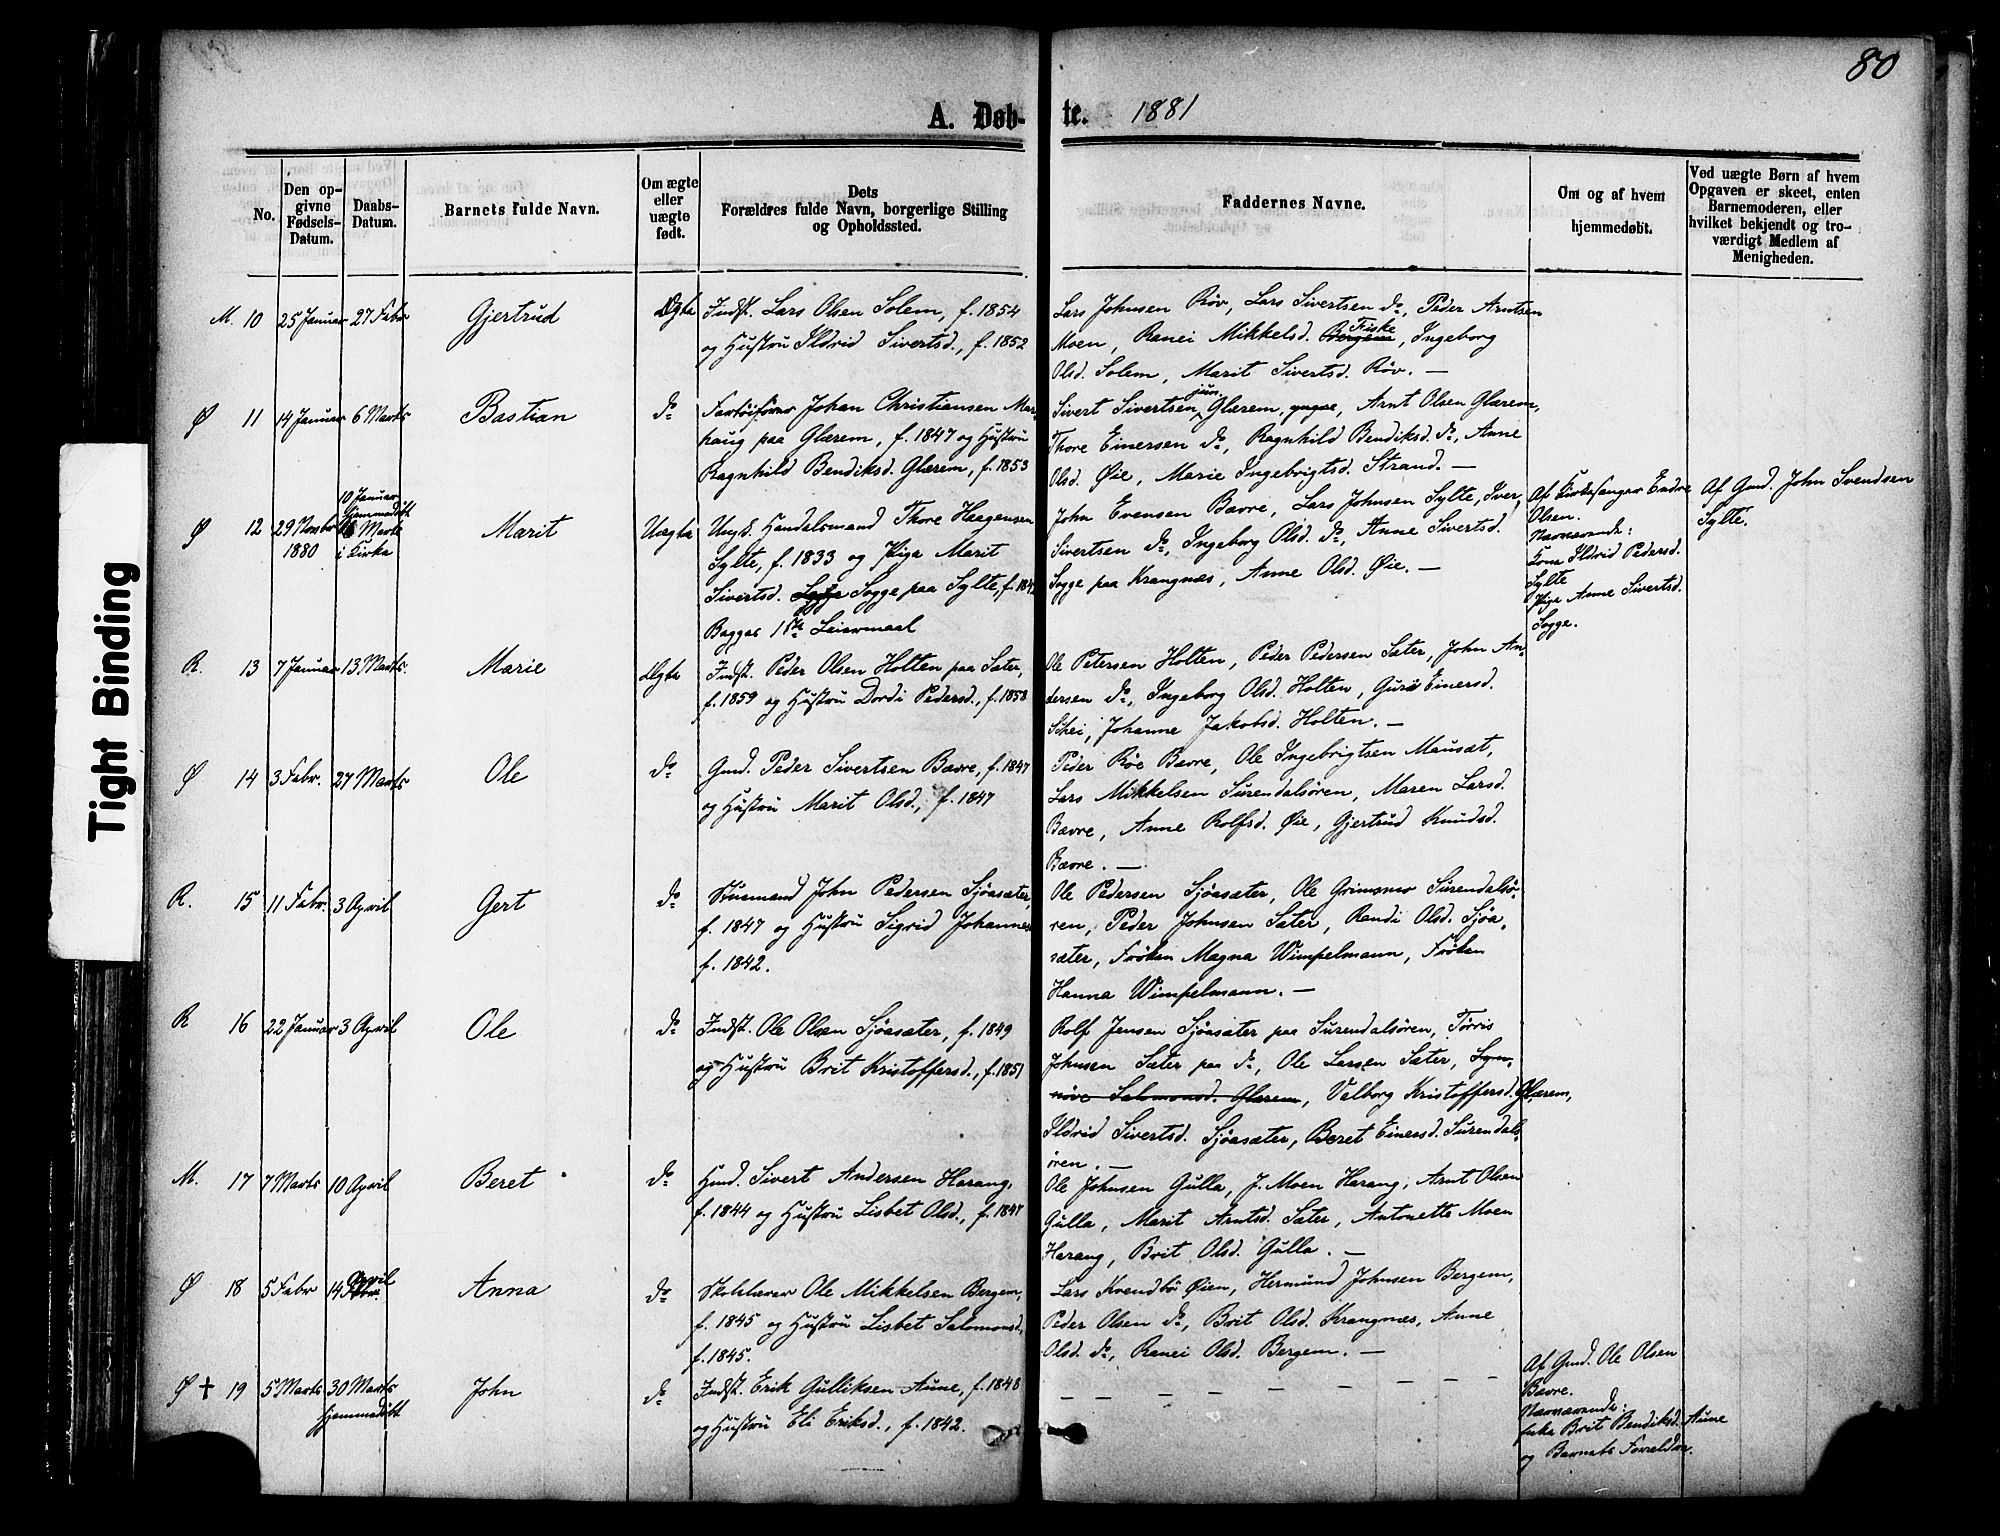 80
A. Døb-
te. 1881
No.
Den op-
givne
Fødsels-
Datum.
Daabs-
Datum.
Barnets fulde Navn.
Om ægte
eller
uægte
født.
Dets
Forældres fulde Navn, borgerlige Stilling
og Opholdssted.
Faddernes Navne.
Om og af hvem
hjemmedøbt.
Ved uægte Børn af hvem
Opgaven er skeet, enten
Barnemoderen, eller
hvilket bekjendt og tro-
værdigt Medlem af
Menigheden.
M. 10 25 Januar 27 Febr Gjertrud Ægte
Indst. Lars Olsen Solem, f. 1854
og Hustru Ildrid Sivertsd., f. 1852
Lars Johnsen Røv, Lars Sivertsen do, Peder Arntsen
Moen, Ranei Mikkelsd. Bergem Fiske, Ingeborg
Olsd. Solem, Marit Sivertsd. Røv. —
Ø 11 14 Januar 6 Marts Bastian do
Fartøifører Johan Christiansen Mar-
haug paa Glærem, f. 1847 og Hustru
Ragnhild Bendiksd. Glærem, f. 1853
Sivert Sivertsen jun. Glærem, yngre, Arnt Olsen Glærem,
Thore Einersen do, Ragnhild Bendiksd. do, Anne
Olsd. Øie, Marie Ingebrigtsd. Strand. —
Ø 12 29 Novbr 1880
10 Januar
hjemmedøbt
Marts
i Kirke
Marit Uægte
Ungk. Handelsmand Thore Haagensen
Sylte, f. 1833 og Pige Marit
Sivertsd. Sogge paa Sylte, f. 184
Begges 1ste Leiermaal
John Evensen Bævre, Lars Johnsen Sylte, Iver
Sivertsen do, Ingeborg Olsd. do, Anne Sivertsd.
Sogge paa Krangnæs, Anne Olsd. Øie. —
Af Kirkesanger Endre
Olsen.
Nærværende:
Kone Ildrid Pedersd.
Sylte
Pige Anne Sivertsd.
Sogge.
Af Gmd. John Svendsen
Sylte.
R. 13 7 Januar 13 Marts. Marie Ægte
Indst. Peder Olsen Holten paa Sæter,
f. 1859 og Hustru Dordi Pedersd., f. 1858
Ole Petersen Holten, Peder Pedersen Sæter, John An-
dersen do, Ingeborg Olsd. Holten, Guri Einersd.
Schei, Johanne Jakobsd. Holten. —
Ø 14 3 Febr. 27 Marts Ole do
Gmd. Peder Sivertsen Bævre, f. 1847
og Hustru Marit Olsd., f. 1847
Peder Røe Bævre, Ole Ingebrigtsen Mausæt,
Lars Mikkelsen Surendalsøren, Maren Larsd.
Bævre, Anne Rolfsd. Øie, Gjertrud Knudsd.
Bævre. —
R. 15 11 Febr. 3 April Gert do
Husmand John Pedersen Sjøasæter,
f. 1847 og Hustru Sigrid Johannes
f. 1842.
Ole Pedersen Sjøasæter, Ole Grimsmo Surendalsø-
ren, Peder Johnsen Sæter, Randi Olsd. Sjøa-
sæter, Frøken Magna Wimpelmann, Frøken
Hanna Wimpelmann. —
R 16 22 Januar 3 April Ole do
Indst. Ole Olsen Sjøasæter, f. 1849
og Hustru Brit Kristoffersd., f. 1851
Rolf Jensen Sjøasæter paa Surendalsøren, Tørris
Johnsen Sæter paa do, Ole Larsen Sæter, Syn-
nøve Salomonsd. Glærem, Valborg Kristoffersd. Glærem,
Ildrid Sivertsd. Sjøasæter, Beret Einersd. Surendals-
øren. —
M. 17 7 Marts 10 April Beret do
Gmd. Sivert Andersen Harang,
f. 1844 og Hustru Lisbet Olsd., f. 1847
Ole Johnsen Gulla, J. Moen Harang, Arnt Olsen
Gulla, Marit Arntsd. Sæter, Antonette Moen
Harang, Brit Olsd. Gulla. —
Ø 18 5 Febr 14 April Anna do
Skolelærer Ole Mikkelsen Bergem,
f. 1845 og Hustru Lisbet Salomonsd.
f. 1845.
Lars Kvendbø Øien, Hermund Johnsen Bergem,
Peder Olsen do, Brit Olsd. Krangnæs, Anne
Olsd. do, Ranei Olsd. Bergem. —
Ø † 19 5 Marts 30 Marts
hjemmedøbt
John do
Indst. Erik Gulliksen Aune, f. 1848
og Hustru Eli Eriksd., f. 1842.
Af Gmd. Ole Olsen
Bævre.
Nærværende:
Enke Brit Bendiksd. Aune
og Barnets Forældre.
Tight Binding